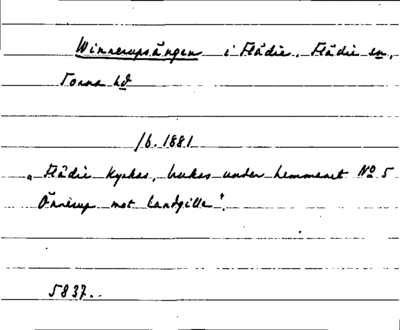 Winnerupsängen i Flädie. Flädie sn,
Torna hd
/6. 1881
"Flädie Kyckas, bukas under hemmanet No 5
Önnerup mot landgille".
5837.